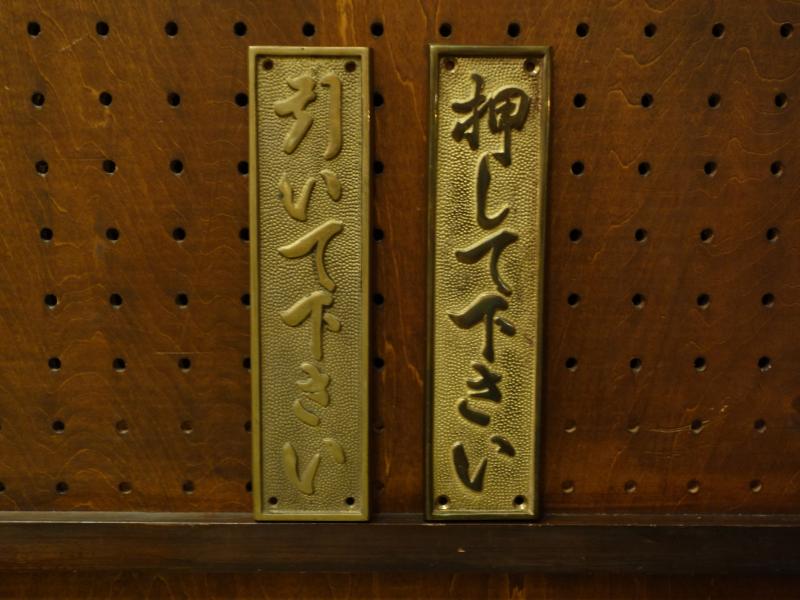 引いて下さい
押して下さい